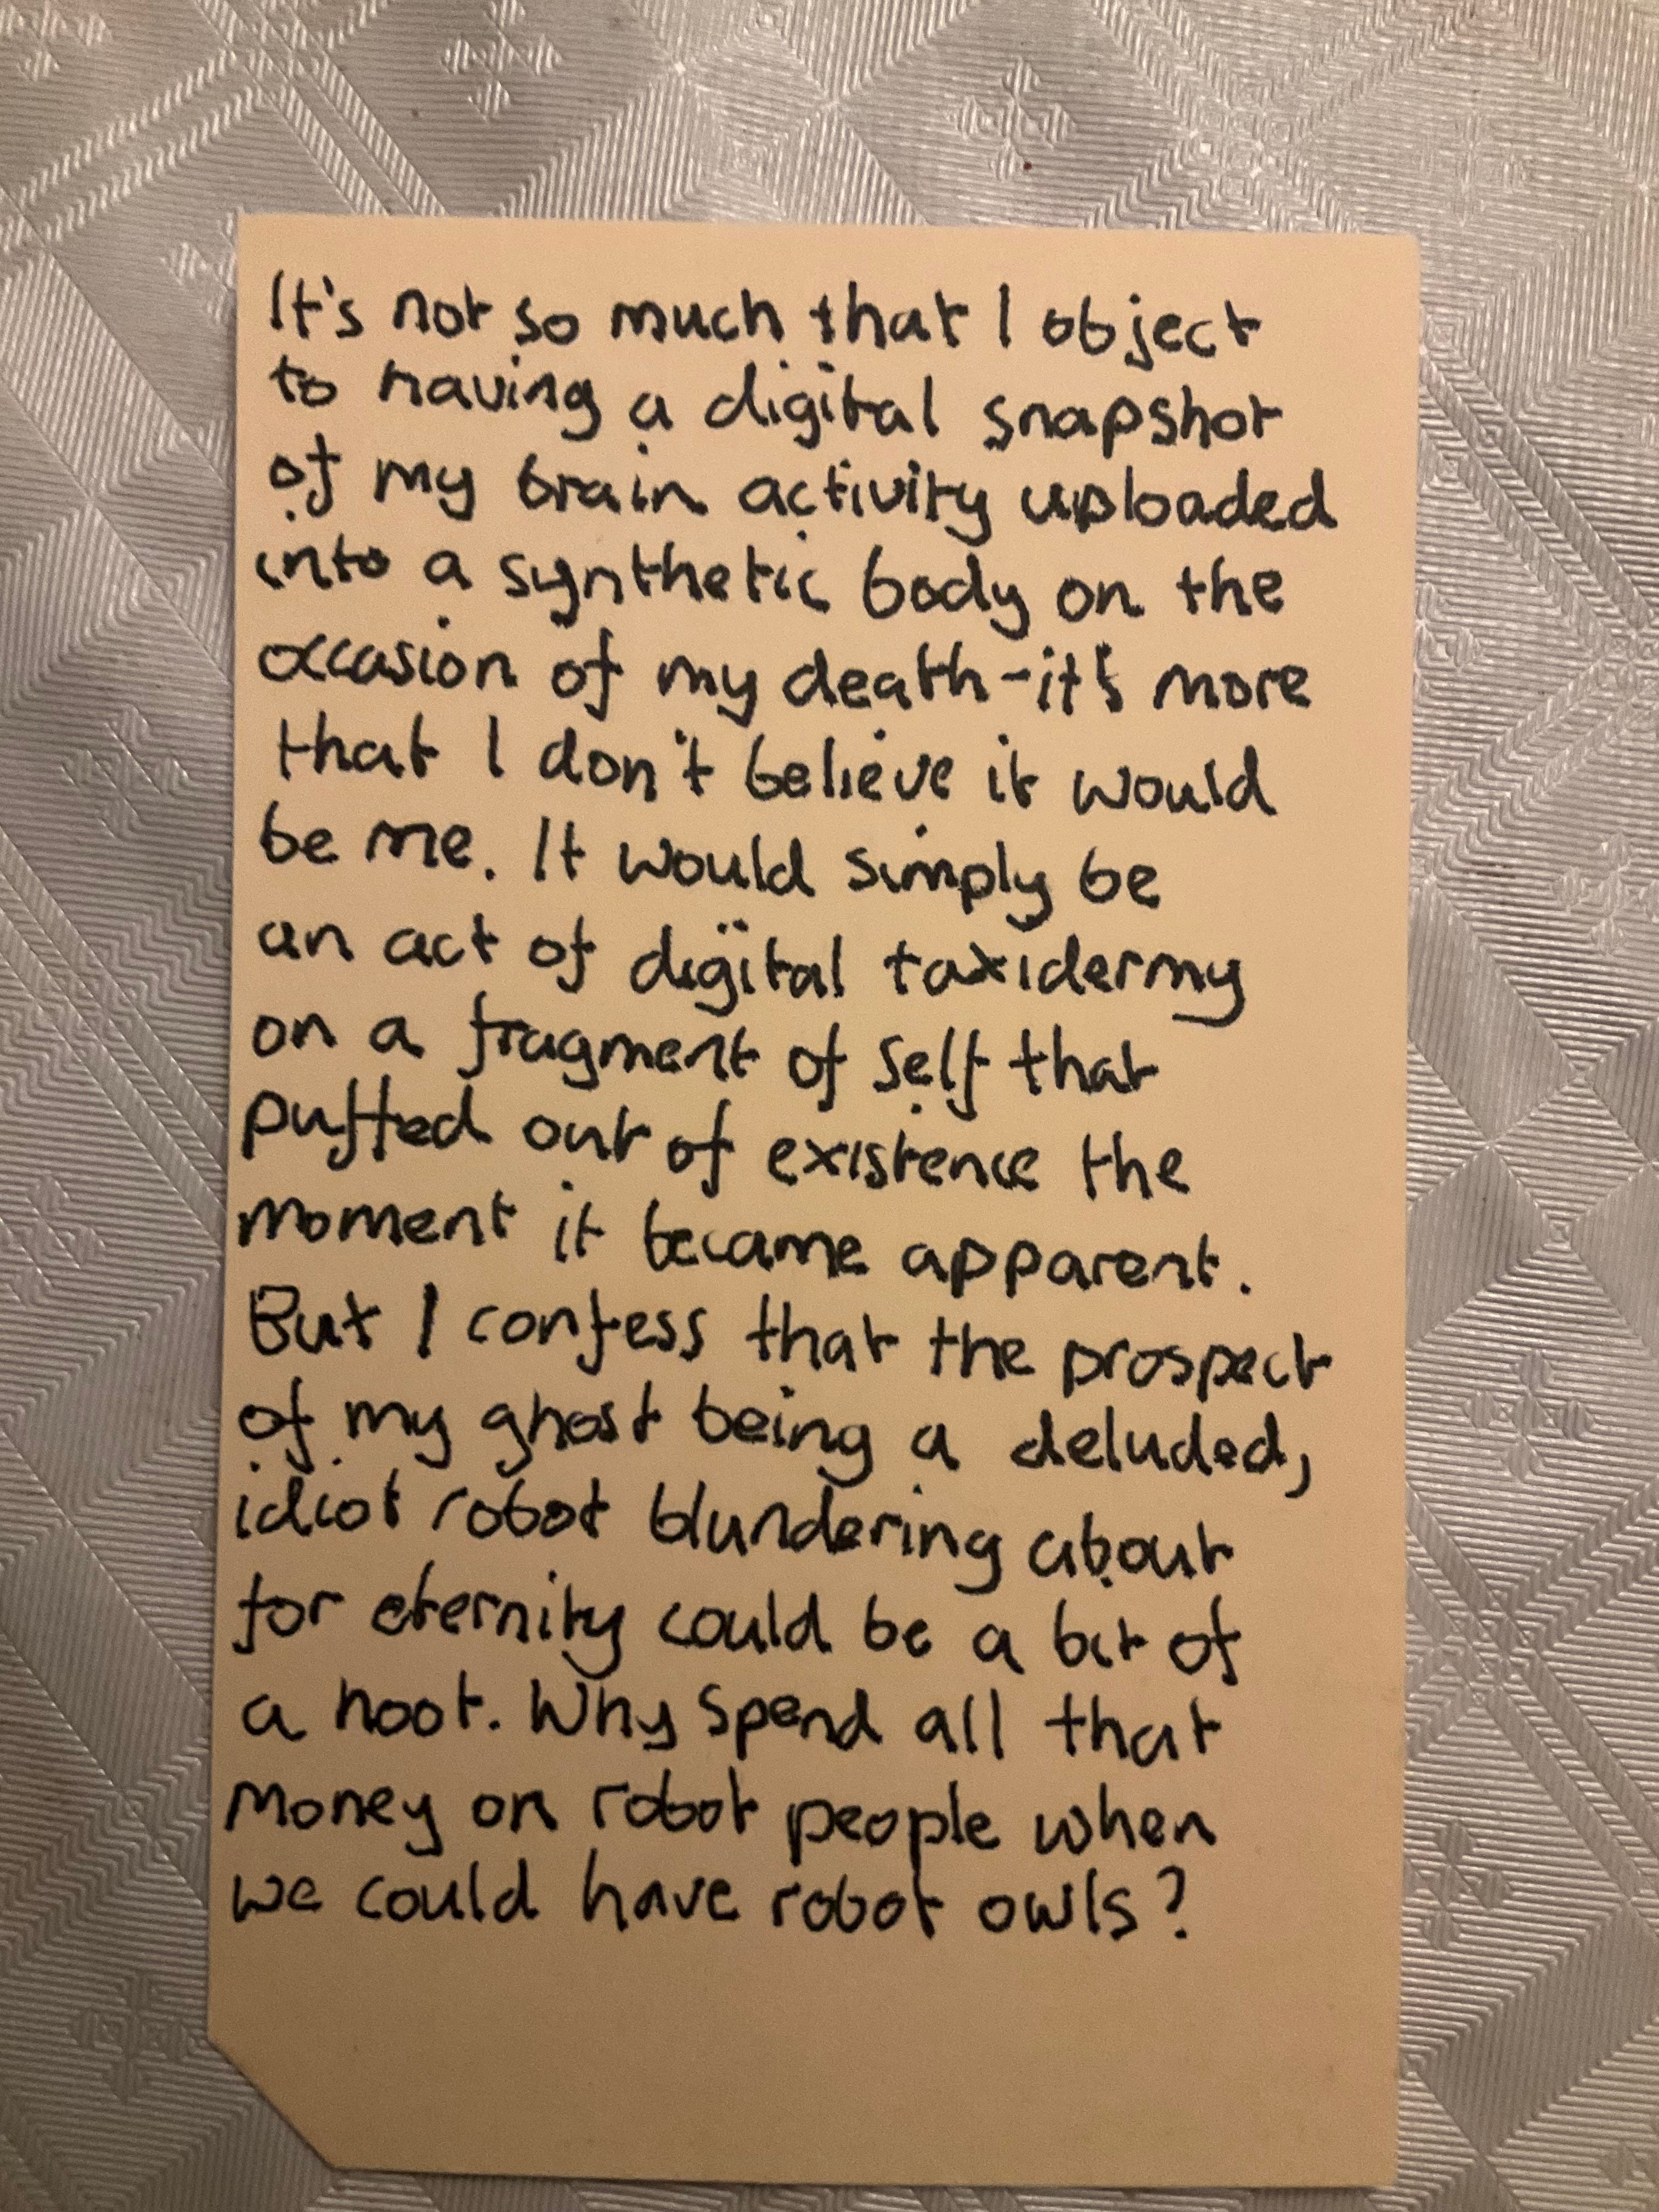 It's not so much that I object
to having a digital snapshot
of my brain activity uploaded
into a synthetic body on the
occasion of my death - it's more
that I don't believe it would
be me. It would simply be
an act of digital taxidermy
on a fragment of self that
puffed out of existence the
moment it became apparent.
But I confess that the prospect
of my ghost being a deluded,
idiot robot blundering about
for eternity could be a bit of
a hoot. Why spend all that
money on robot people when
we could have robot owls?